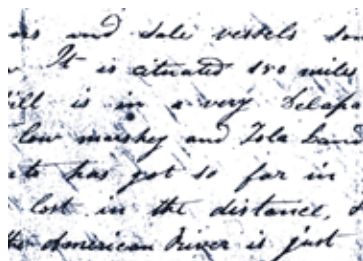 and sale vessels
It is cituated 180 miles
ill is in a very
low marshey and Tola Land
has got so far in
lost in the distance,
the American River is just